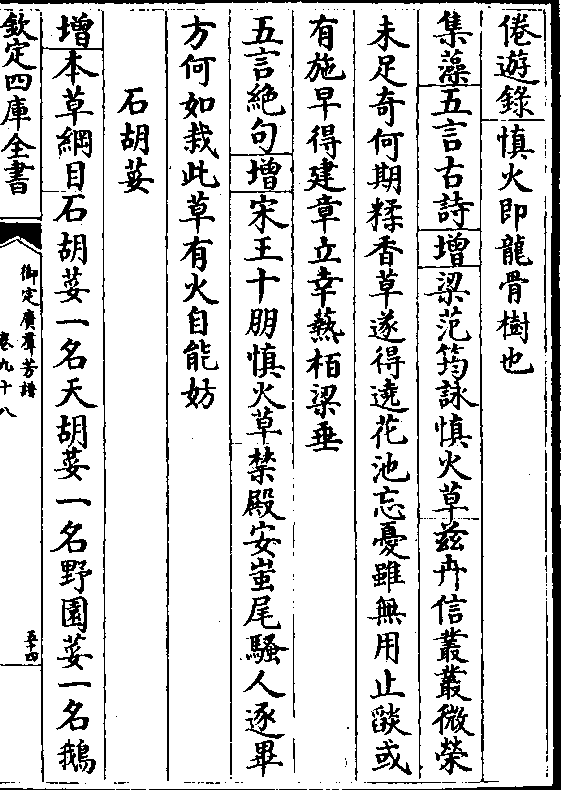 倦遊錄慎火即龍骨樹也
集藻五言古詩增梁范筠詠慎火草兹卉信叢叢微榮
未足奇何期糅香草遂得遶花池忘憂雖無用止燄或
有施早得建章立幸爇栢梁垂
五言絶句增宋王十朋慎火草禁殿安蚩尾騷人逐畢
方何如栽此草有火自能妨
石胡荽
增本草綱目石胡荽一名天胡荽一名野園荽一名鵝
欽定四庫全書
御定廣羣芳譜
卷九十八
五十四